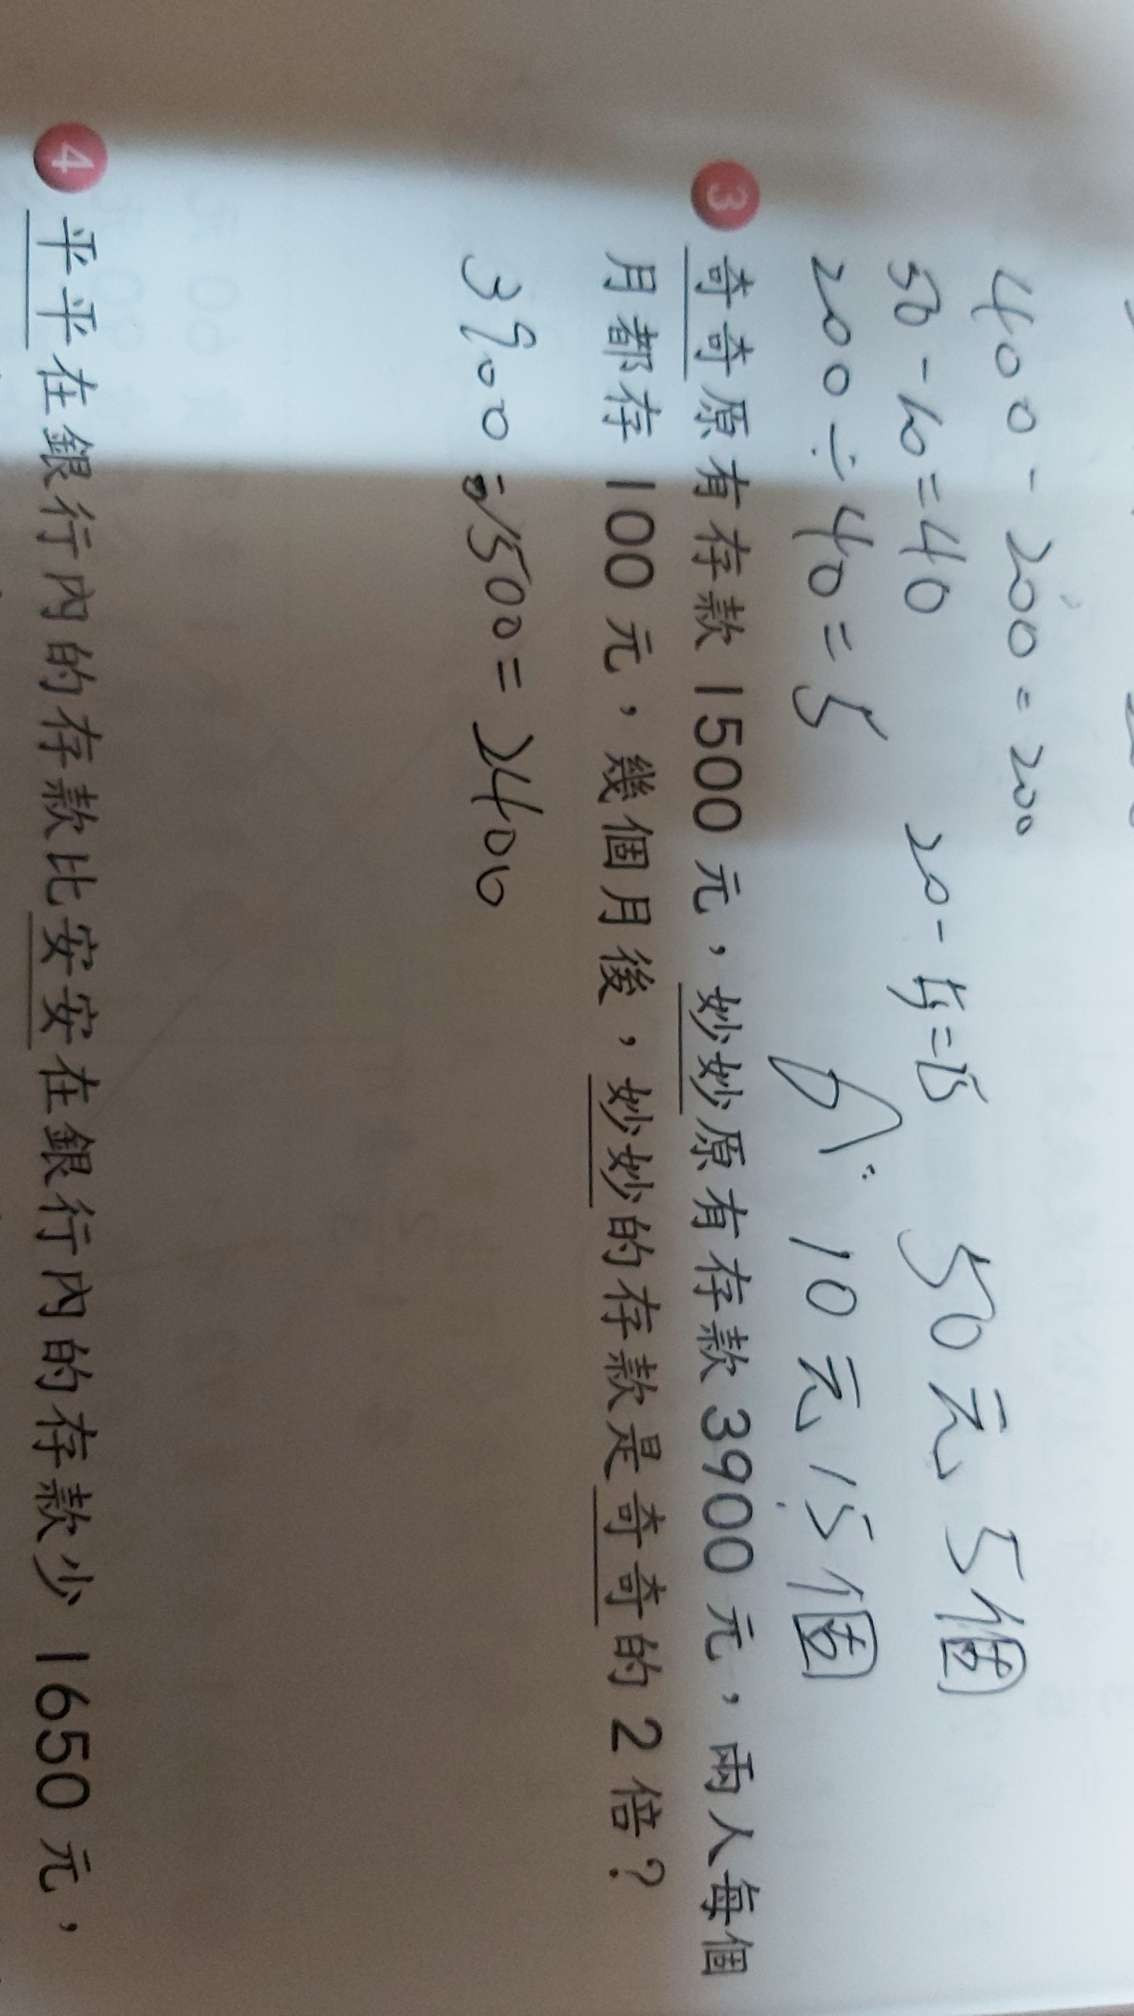 400-200=200
50-10=40 20-5=15 50元5個
200÷40=5 A: 10元15個
3 奇奇原有存款1500元，妙妙原有存款3900元，兩人每個
月都存100元，幾個月後，妙妙的存款是奇奇的2倍？
3900-1500=2400
4 平平在銀行內的存款比安安在銀行內的存款少1650元，